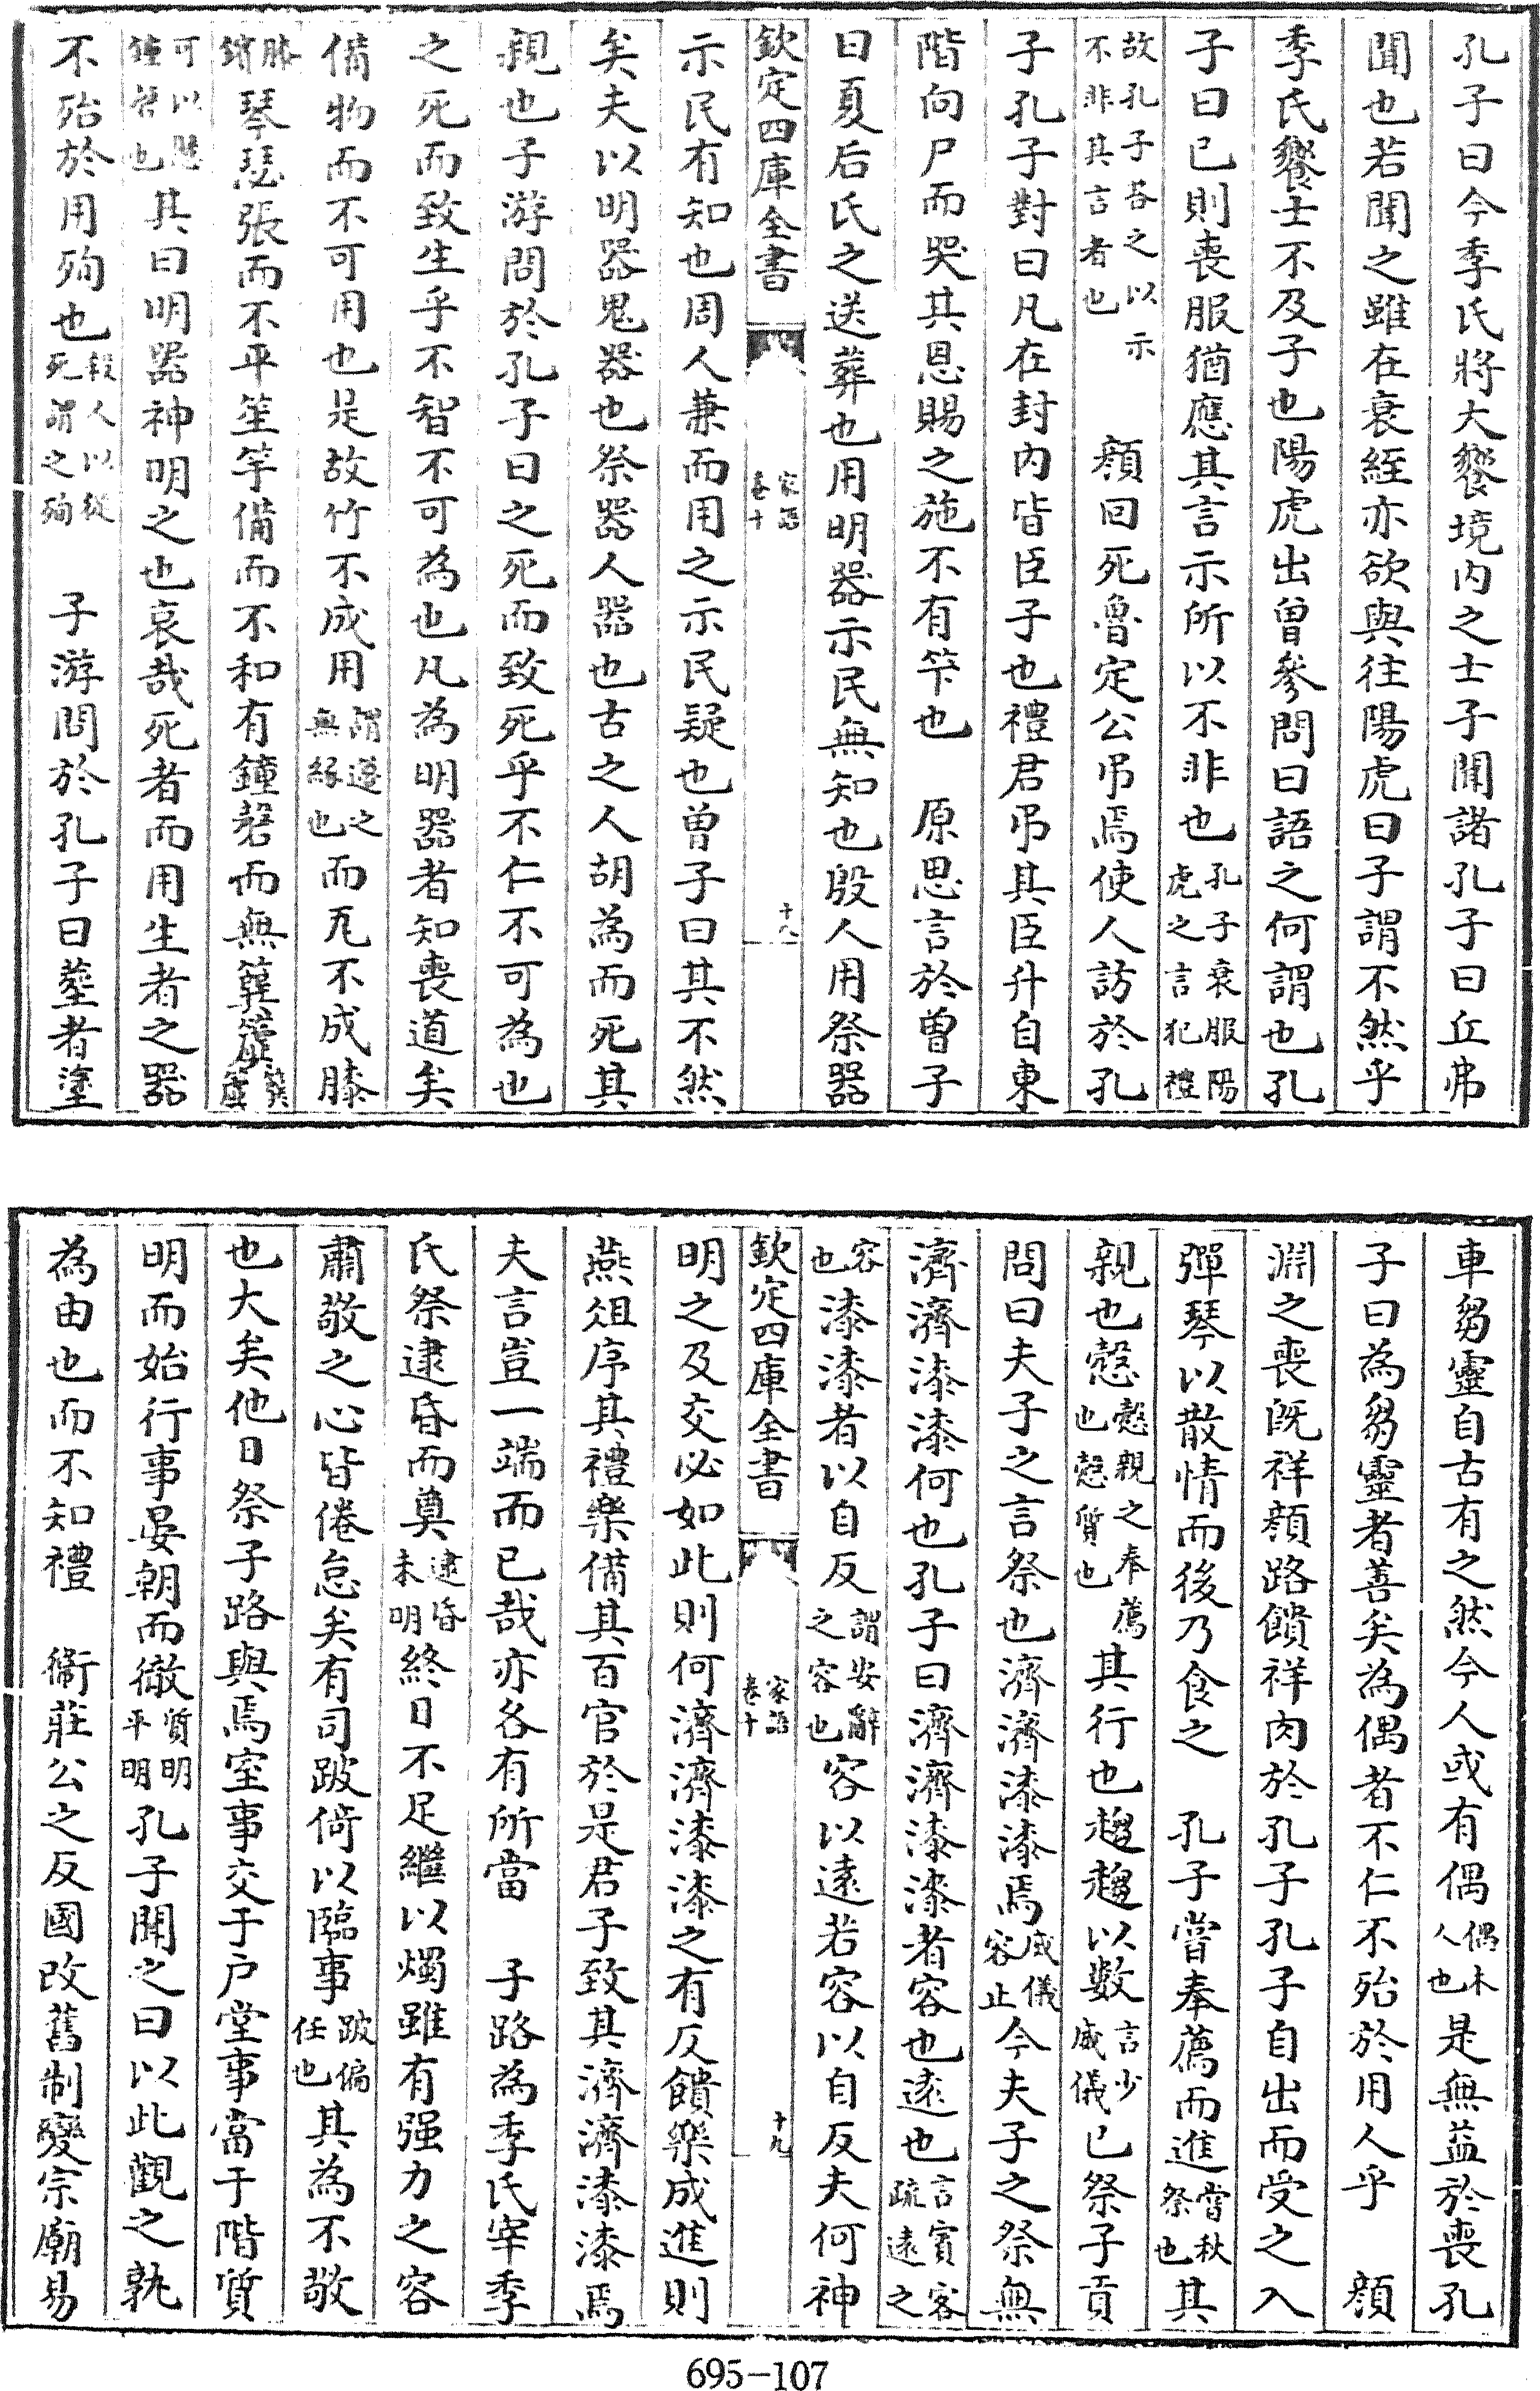 孔子曰今季氏將大饗境内之士子聞諸孔子曰丘弗
聞也若聞之雖在衰絰亦欲與往陽虎曰子謂不然乎
季氏饗士不及子也陽虎出曾參問曰語之何謂也孔
子曰已則喪服猶應其言示所以不非也孔子衰服陽虎之言犯禮
故孔子荅之以示不非其言者也　顔回死魯定公弔焉使人訪於孔
子孔子對曰凡在封内皆臣子也禮君弔其臣升自東
階向尸而哭其恩賜之施不有笇也　原思言於曽子
曰夏后氏之送葬也用明器示民無知也殷人用祭器
欽定四庫全書　家語卷十　十八
示民有知也周人兼而用之示民疑也曽子曰其不然
矣夫以明器鬼器也祭器人器也古之人胡為而死其
親也子游問於孔子曰之死而致死乎不仁不可為也
之死而致生乎不智不可為也凡為明器者知喪道矣
備物而不可用也是故竹不成用謂籩之無緣也而瓦不成膝
膝鐼琴瑟張而不平笙竽備而不和有鐘磬而無簨簴簨簴
可以懸鐘磬也其曰明器神明之也哀哉死者而用生者之器
不殆於用殉也殺人以從死謂之殉　子游問於孔子曰塟者塗
車芻靈自古有之然今人或有偶偶木人也是無益於喪孔
子曰為芻靈者善矣為偶者不仁不殆於用人乎　顔
淵之喪既祥顔路饋祥肉於孔子孔子自出而受之入
彈琴以散情而後乃食之　孔子嘗奉薦而進嘗秋祭也其
親也慤慤親之奉薦也慤質也其行也趨趨以數言少威儀已祭子貢
問曰夫子之言祭也濟濟漆漆焉威儀容止今夫子之祭無
濟濟漆漆何也孔子曰濟濟漆漆者容也遠也言賓客疏遠之
容也漆漆者以自反謂安辭之容也容以遠若容以自反夫何神
欽定四庫全書　家語卷十　十九
明之及交必如此則何濟濟漆漆之有反饋樂成進則
燕俎序其禮樂備其百官於是君子致其濟濟漆漆焉
夫言豈一端而已哉亦各有所當　子路為季氏宰季
氏祭逮昏而奠逮昏未明終日不足繼以燭雖有强力之容
肅敬之心皆倦怠矣有司跛倚以臨事跛偏任也其為不敬
也大矣他日祭子路與焉室事交于户堂事當于階質
明而始行事晏朝而徹質明平明孔子聞之曰以此觀之孰
為由也而不知禮　衞莊公之反國改舊制變宗廟易
695-107